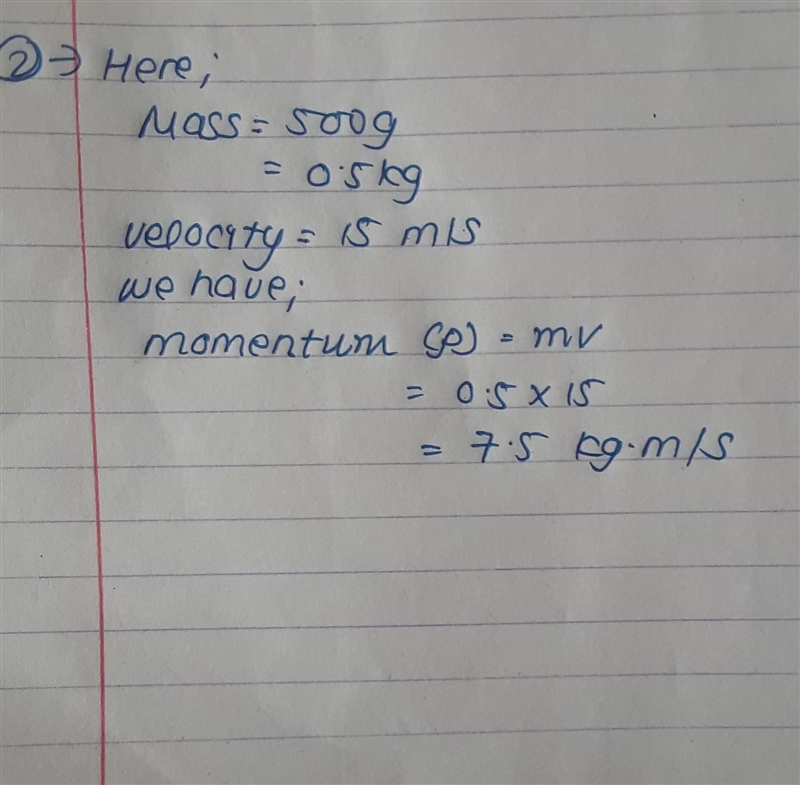 ②→ Here;
Mass = 500g
= 0.5kg
velocity = 15 m/s
we have;
momentum (p) = mv
= 0.5 × 15
= 7.5 kg·m/s